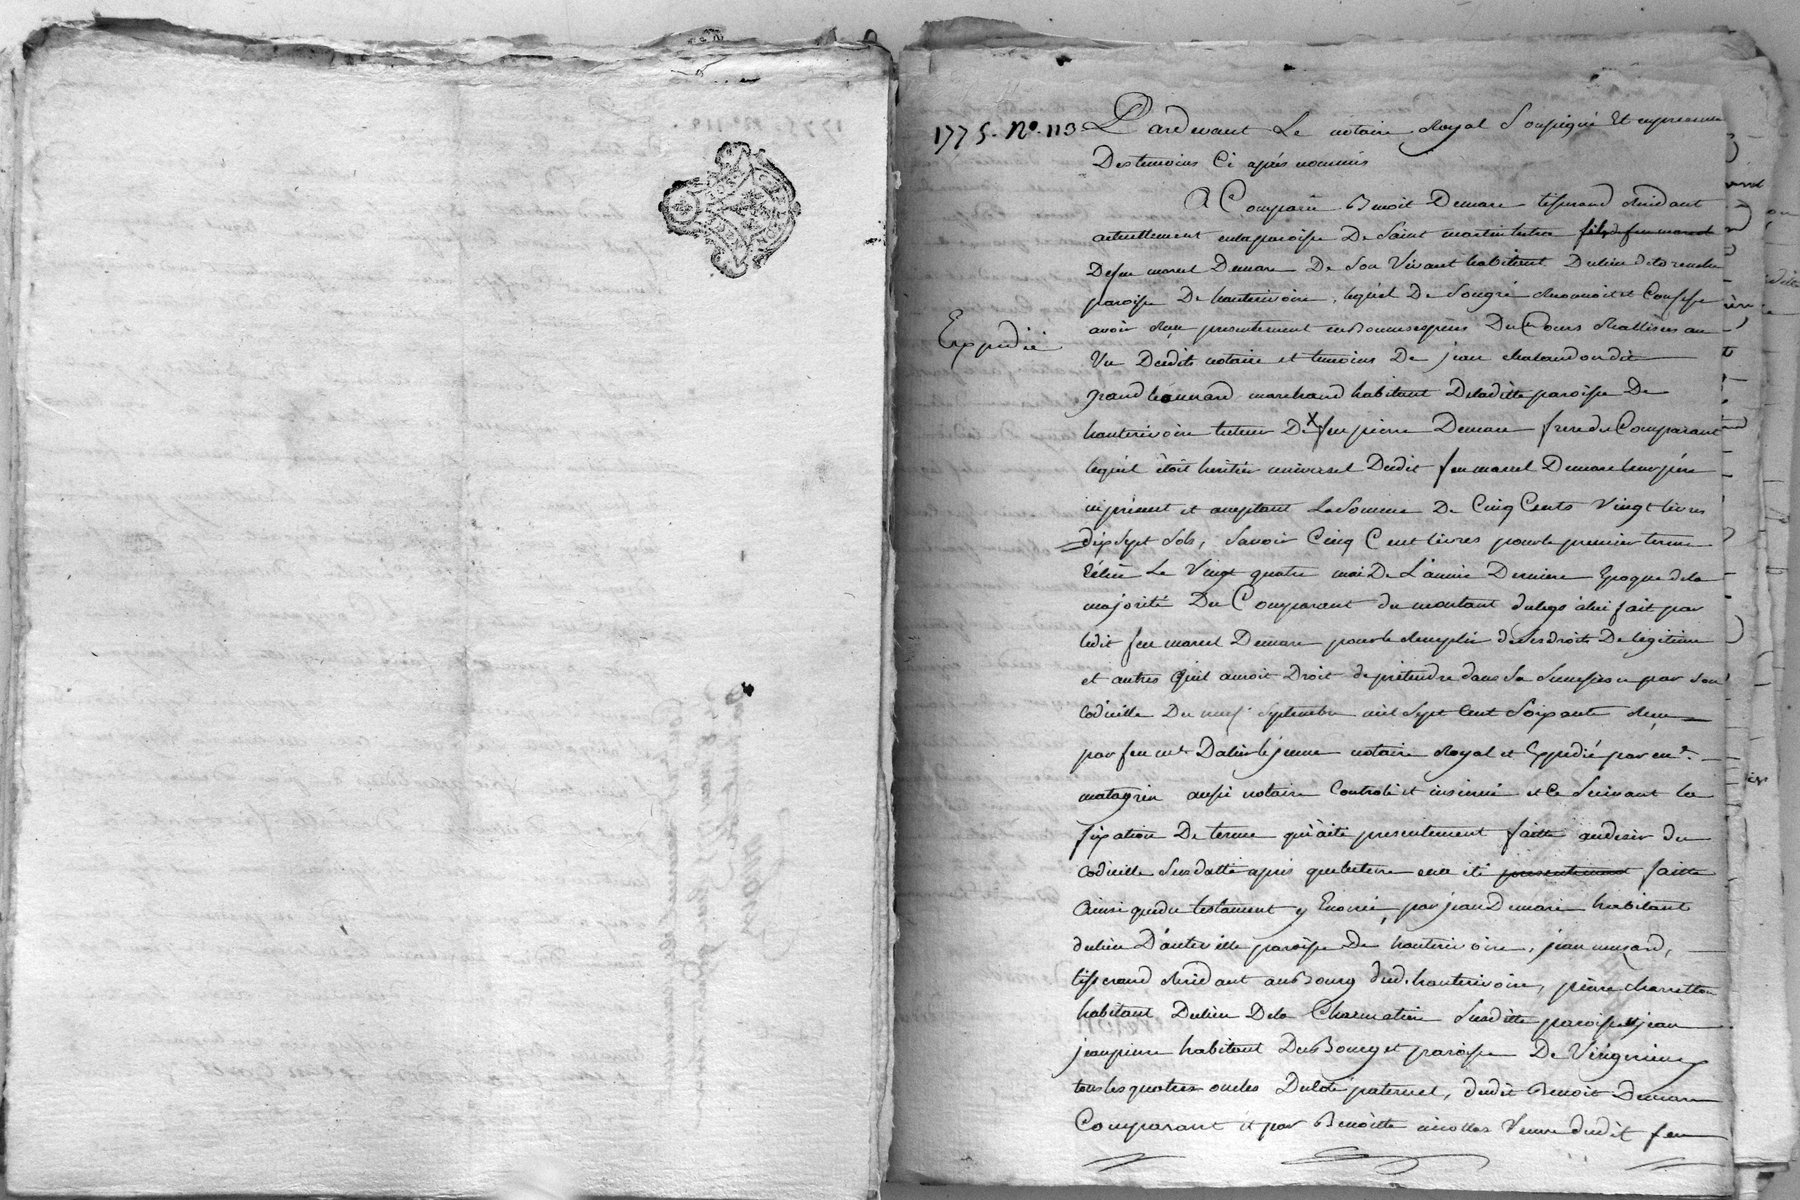 1775. N°. 113
Pardevant Le notaire Royal Soussigné Et en presence
Des temoins Ci après nommés
A Comparu Benoit Demare tisserand Residant
actuellement en la paroisse De Saint martin fils de feu marcel
De feu marcel Demare De Son Vivant habitant Du lieu de
paroisse De hauterivoire, lequel De Son gré Reconnoit et Confesse
avoir Reçu presentement en Bonnes especes Du Cours Reallisées au
Expedié
Vu Desdits notaire et temoins De jean chabaudon dit
grand leonnard marchand habitant De laditte paroisse De
hauterivoire tuteur De feu pierre Demare frere du Comparant
lequel étoit heritier universel Dudit feu marcel Demare leur père
icy présent et acceptant La Somme De Cinq Cents Vingt livres
dix Sept Sols, Savoir Cinq Cent livres pour le premier terme
Echu Le Vingt quatre mai De L'année Derniere Epoque de la
majorité Du Comparant du montant du legs à lui fait par
ledit feu marcel Demare pour le Remplir de Ses droits De legitime
et autres qu'il auroit Droit de prétendre dans Sa Succession par Son
Codicille Du neuf Septembre mil Sept Cent Soixante Reçu
par feu me Dalin le jeune notaire Royal et Expedié par me.
matagrin aussi notaire Controlé et insinué et Ce Suivant la
fixation De terme qui a été presentement faitte au desir du
Codicille Susdatté après que lecture en a été presentement faitte
Ainsi que du testament y Enoncé, par jean Demare habitant
du lieu D'auteville paroisse De hauterivoire, jean muzard,
tisserand Residant au Bourg dud. hauterivoire, pierre charretton
habitant Du lieu De la Charmatiere Susditte paroisse, jean
jean pierre habitant Du Bourg et paroisse De
tous les quatres oncles Du Coté paternel, dudit Benoit Demare
Comparant et par Benoitte Veuve dudit feu